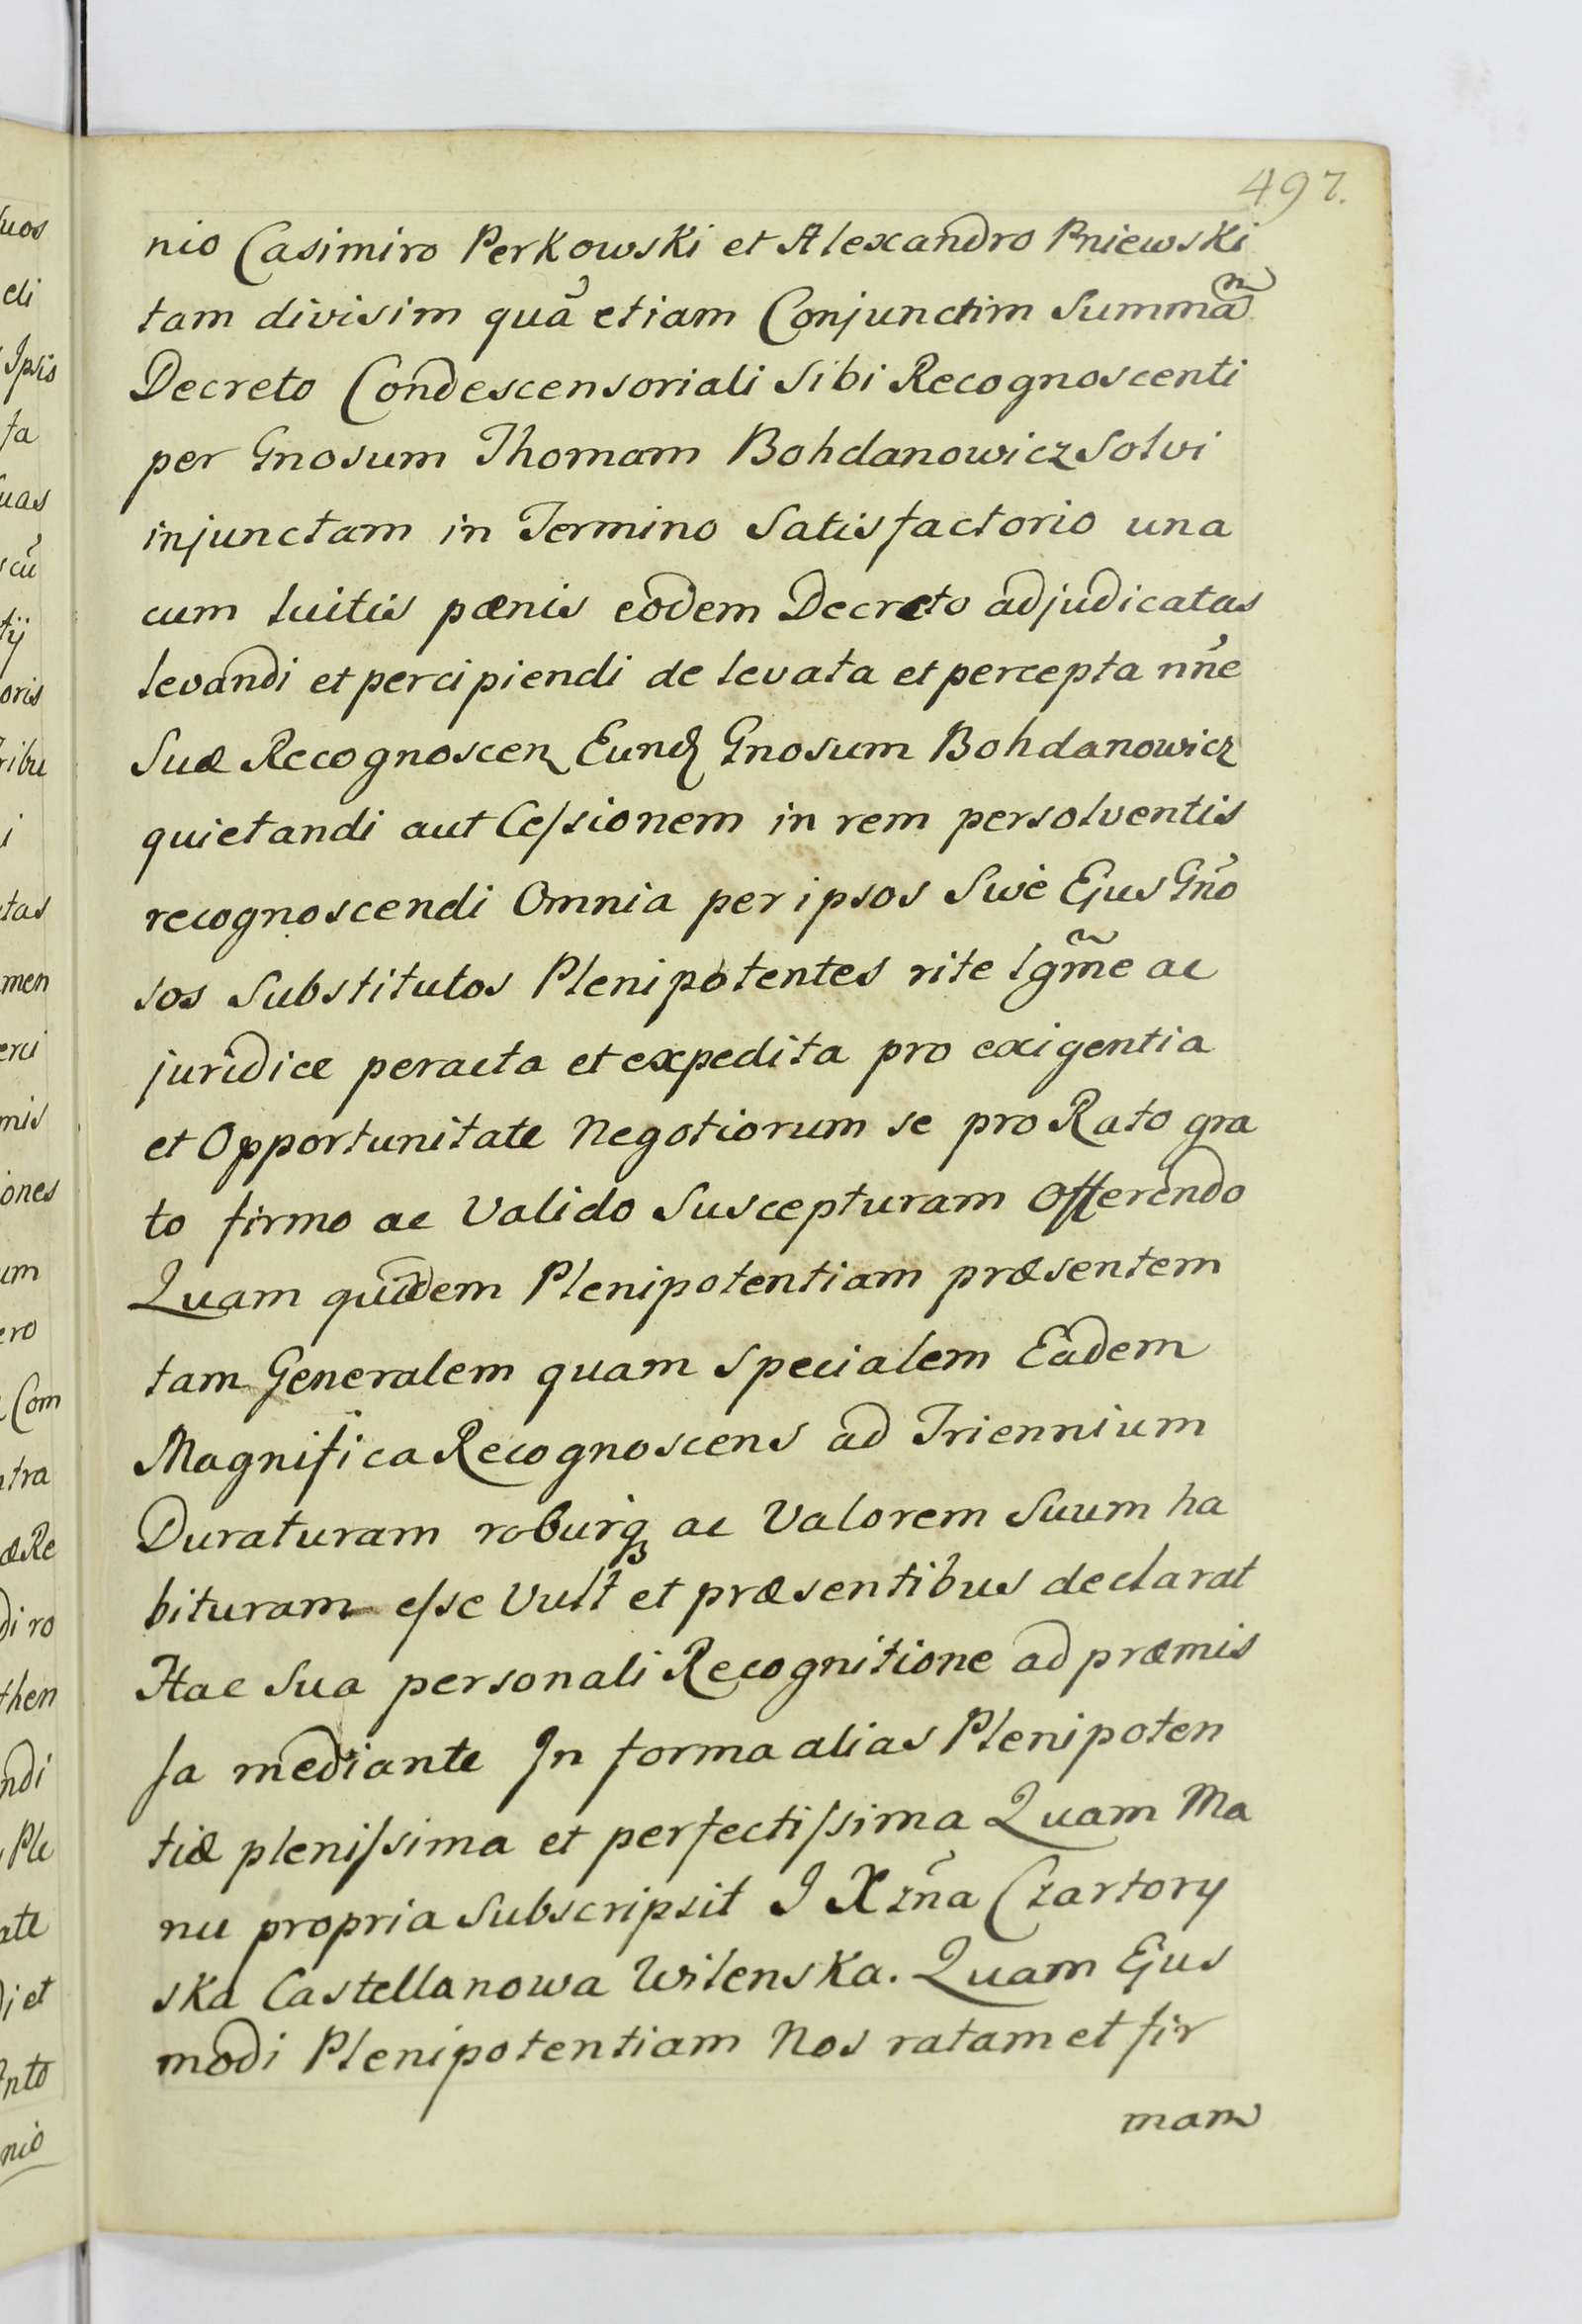 497.
nio Casimiro Perkowski et Alexandro Pniewski
tam divisim quã etiam Conjunctim Summam
Decreto Condescensoriali Sibi Recognoscenti
per Gnosum Thomam Bohdanowicz Solvi
injunctam in Termino Satisfactorio una
cum luitis pœnis eodem Decreto adjudicatas
levandi et percipiendi de levata et percepta nñe
Suæ Recognoscen Eund Gnosum Bohdanowicz
quietandi aut Cessionem in rem persolventis
recognoscendi Omnia per ipsos Swe Ejus Gño
sos Substitutos Plenipotentes rite lgm̃e ac
juridice peracta et expedita pro exigentia
et Opportunitate Negotiorum se pro Rato gra
to firmo ac Valido Suscepturam Offerendo
Quam quidem Plenipotentiam præsentem
tam Generalem quam Specialem Eadem
Magnifica Recognoscens ad Triennium
Duraturam roburq ac Valorem Suum ha
bituram esse Vult et præsentibus declarat
Hac Sua personali Recognitione ad præmis
sa mediante In forma alias Plenipoten
tiæ plenissima et perfectissima Quam Ma
nu propria Subscripsit J Xzña Czartory
ska Castellanowa Wilenska. Quam Ejus
modi Plenipotentiam Nos ratam et fir
mam